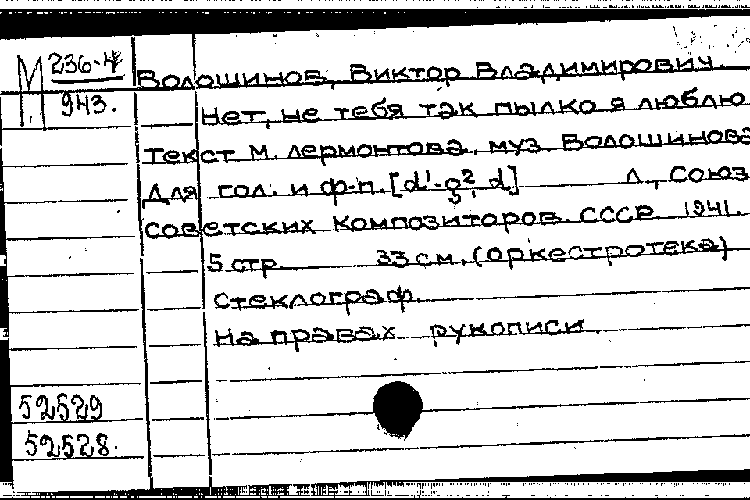 М 236-4
943.
Волошинов, Виктор Владимирович.
Нет, не тебя так пылко я люблю
Текст М. Лермонтова, муз. Волошинова
Для гол. и ф-п. [d¹-g², d.] Л., Союз
советских композиторов СССР 1941.
5 стр. 33 см. (оркестротека)
Стеклограф.
На правах рукописи.
52529
52528.